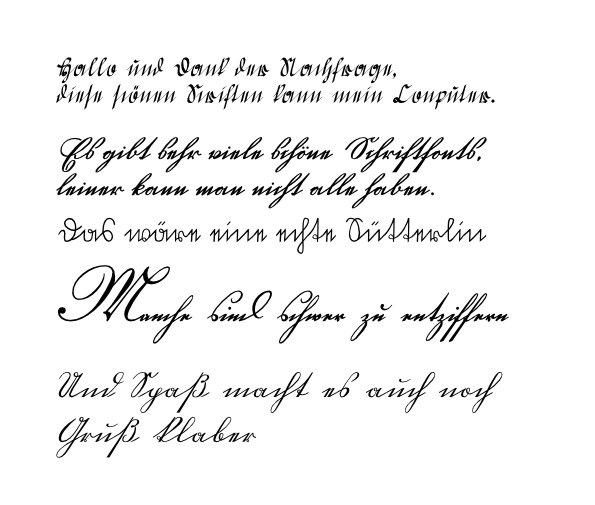 Hallo und Dank der Nachfrage,
diese schönen Schriften kann mein Computer.
Es gibt sehr viele schöne Schriftfonts,
leider kann man nicht alle haben.
Das wäre eine echte Sütterlin
Manche sind schwer zu entziffern
Und Spaß macht es auch noch
Gruß Klaber